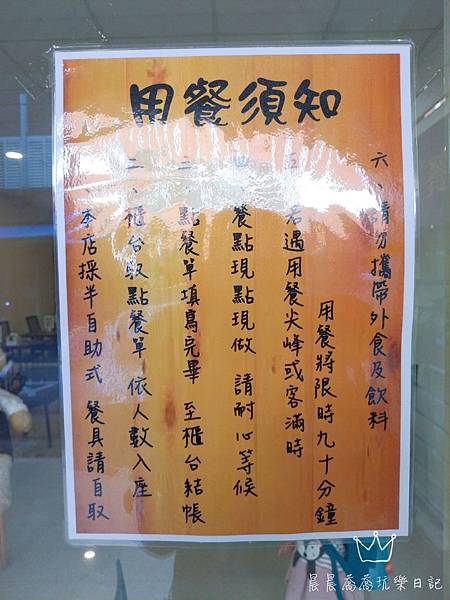 用餐須知
一、本店採半自助式 餐具請自取
二、櫃台取點餐單 依人數入座
三、點餐單填寫完畢 至櫃台結帳
四、餐點現點現做 請耐心等候
五、若遇用餐尖峰或客滿時
用餐將限時九十分鐘
六、請勿攜帶外食及飲料
晨晨喬喬玩樂日記